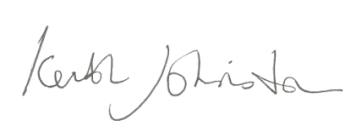 Keith Johnston